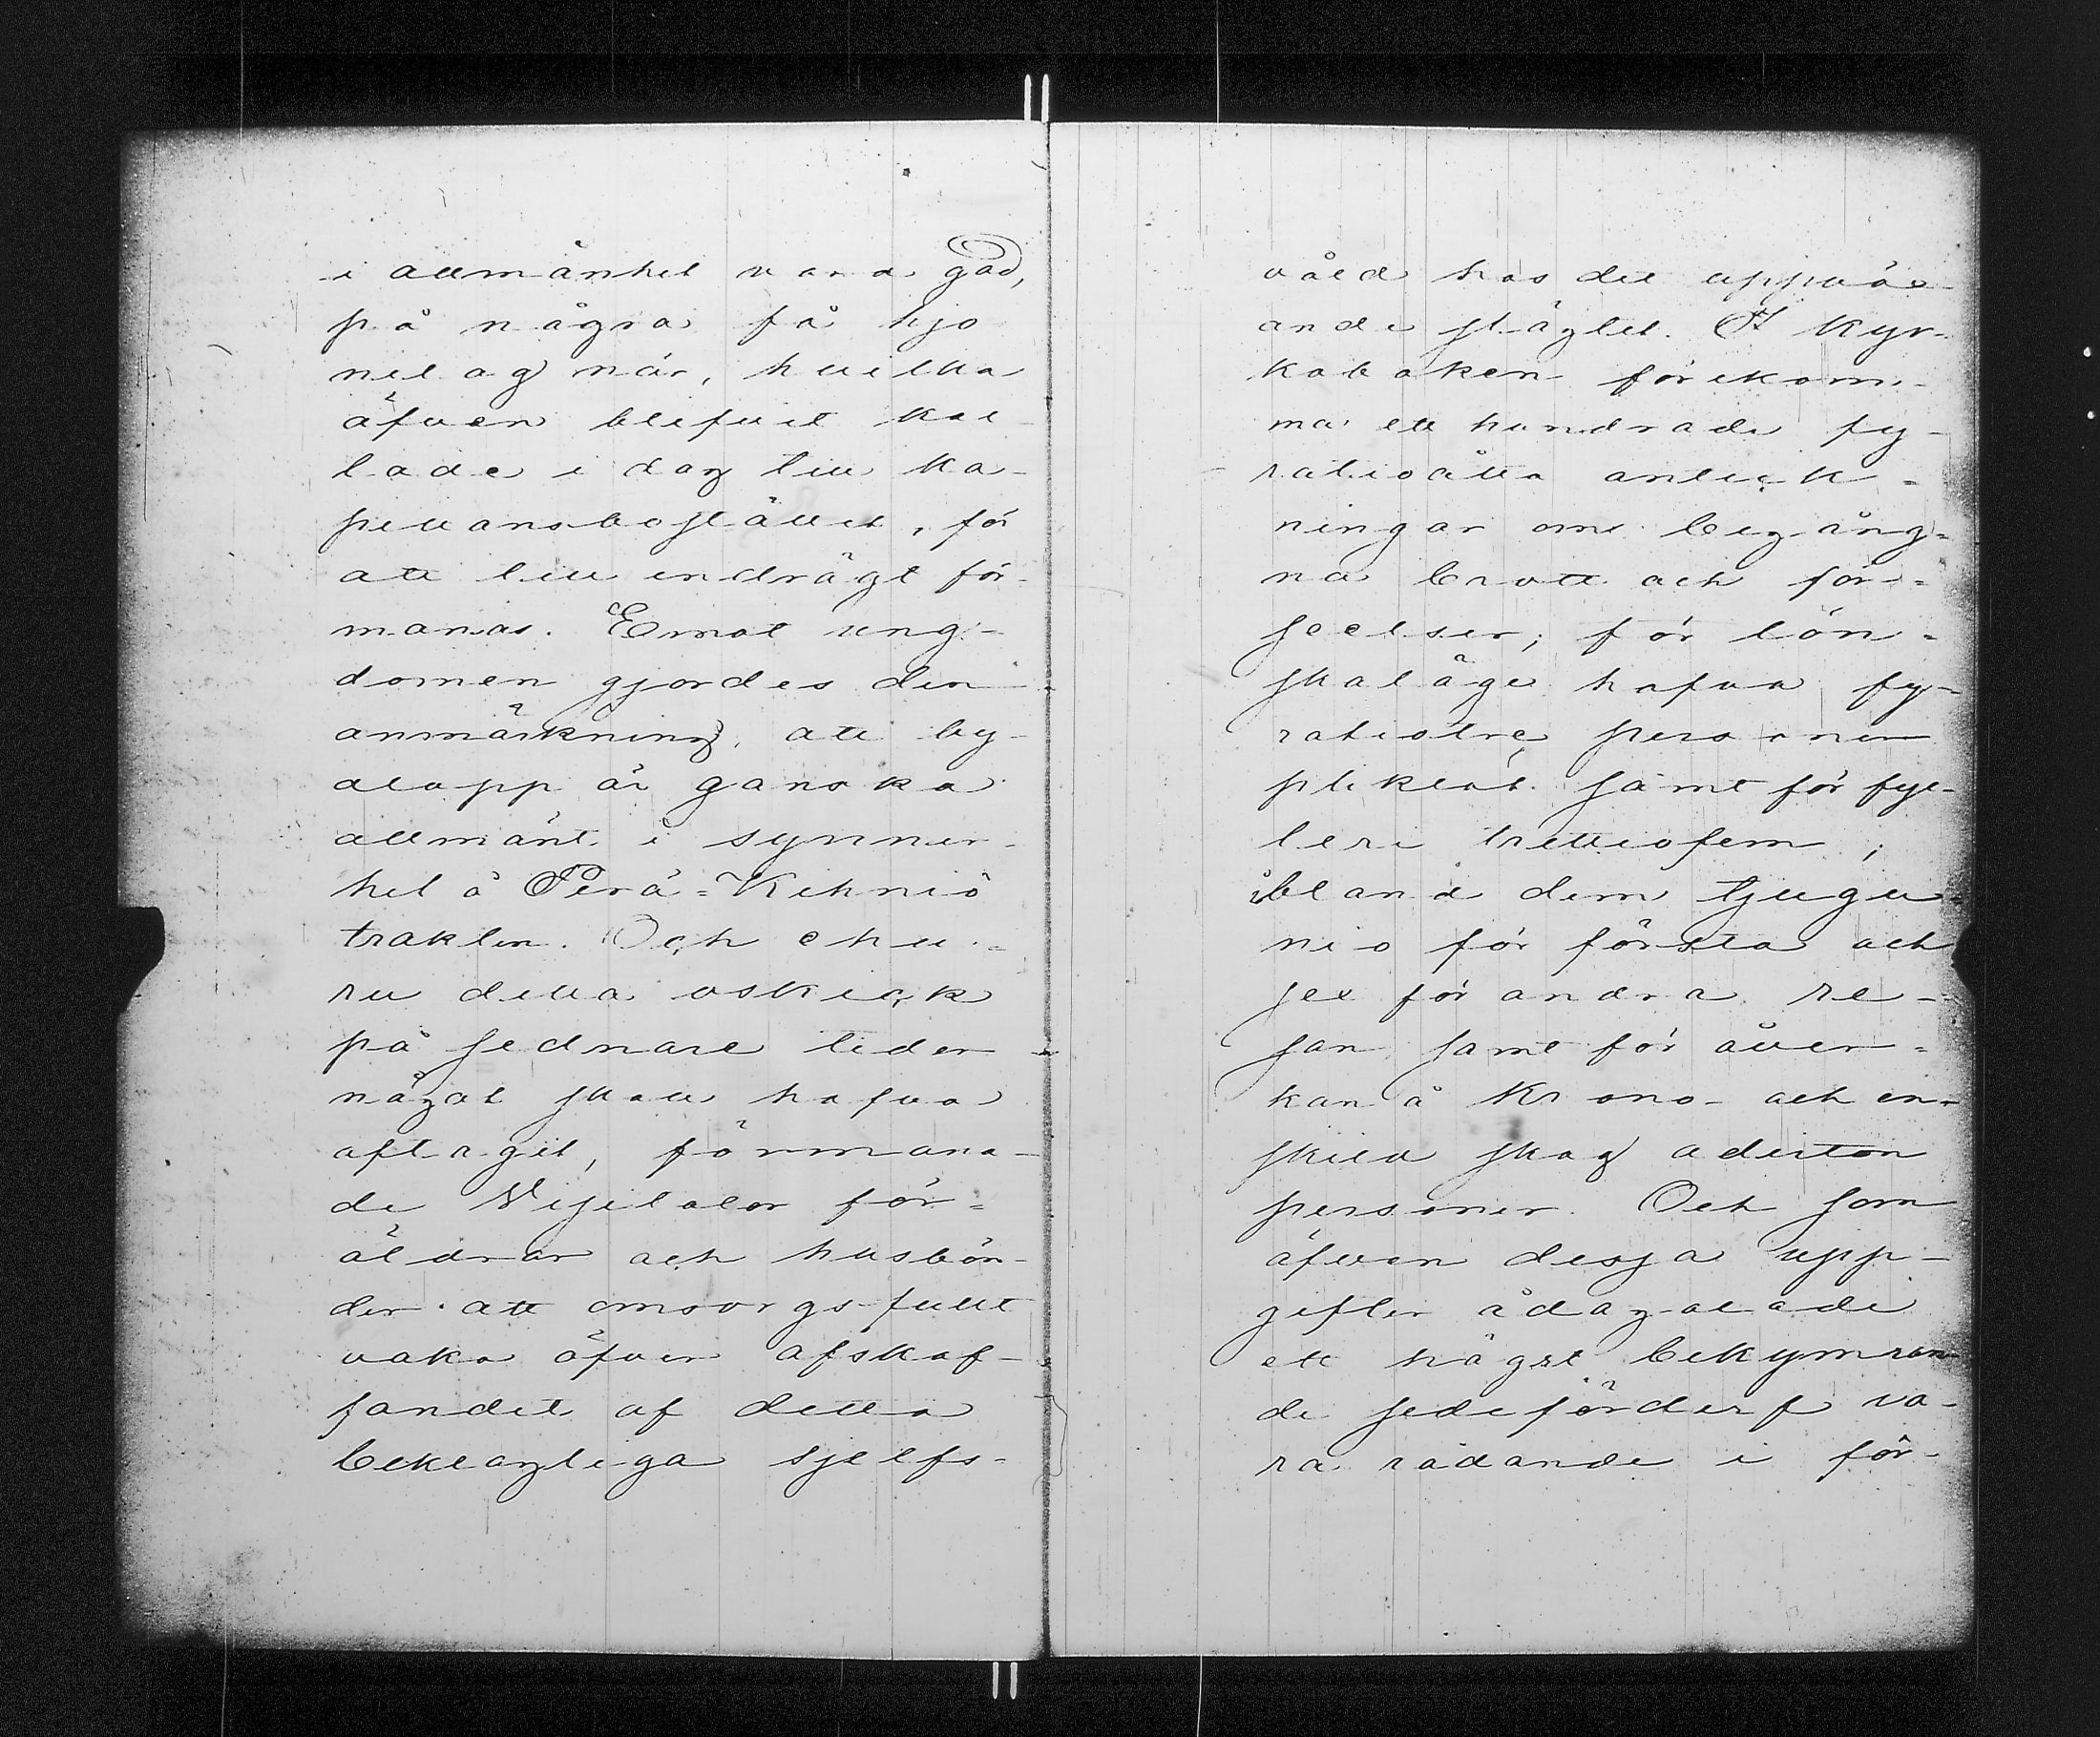 i allmänhet vara god,
på några få hjo
nelag när, hvilka
äfven blifvit kal
lade i dag till ka-
pellansbostället, för
att till endrägt för-
manas. Emot ung-
domen gjordes den
anmärkning, att by-
alopp är ganska
allmänt i synner-
het å Perä-Kihniö
trakten. Och ehu-
ru detta oskick
på sednare tider
något skall hafva
aftagit, förmana-
de Visitator för-
äldrar och husbön-
der att omsorgsfullt
vaka öfver afskaf-
fandet af detta
beklagliga sjelfs-
våld hos det uppväx-
ande slägtet. I Kyr-
koboken förekom-
ma ett hundrade fy-
ratioåtta anteck-
ningar om begång-
na brott och för-
seelser; för lön-
skaläge hafva fy-
ratiotre personer
pliktat samt för fyl-
leri trettiofem;
ibland dem tjugu-
nio för första och
sex för andra re-
san samt för åver-
kan å Krono- och en-
skild skog aderton
personer. Och som
äfven dessa upp-
gifter ådagalade
ett högst bekymran-
de sedeförderf va-
ra rådande i för-